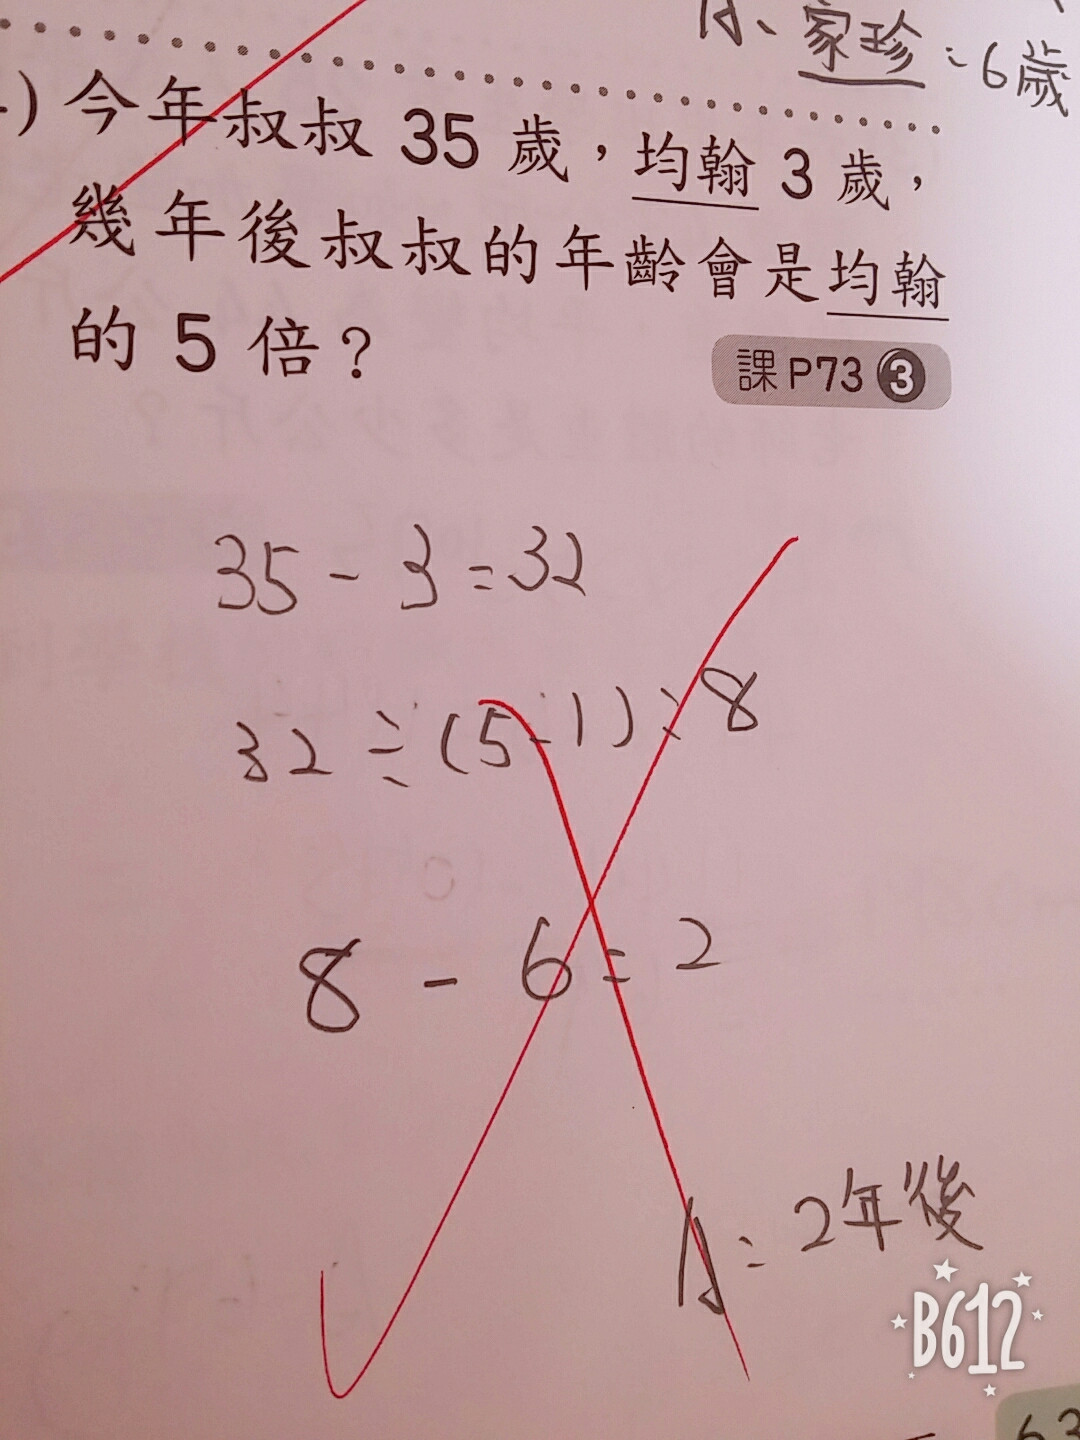 A、家珍:6歲
)今年叔叔 35 歲，均翰 3 歲，
幾年後叔叔的年齡會是均翰
的 5 倍？
課P73 3
35-3=32
32÷(5-1)=8
8-6=2
A:2年後
B612
63